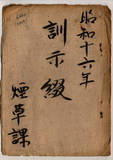 昭和十六年
訓示綴
煙草課